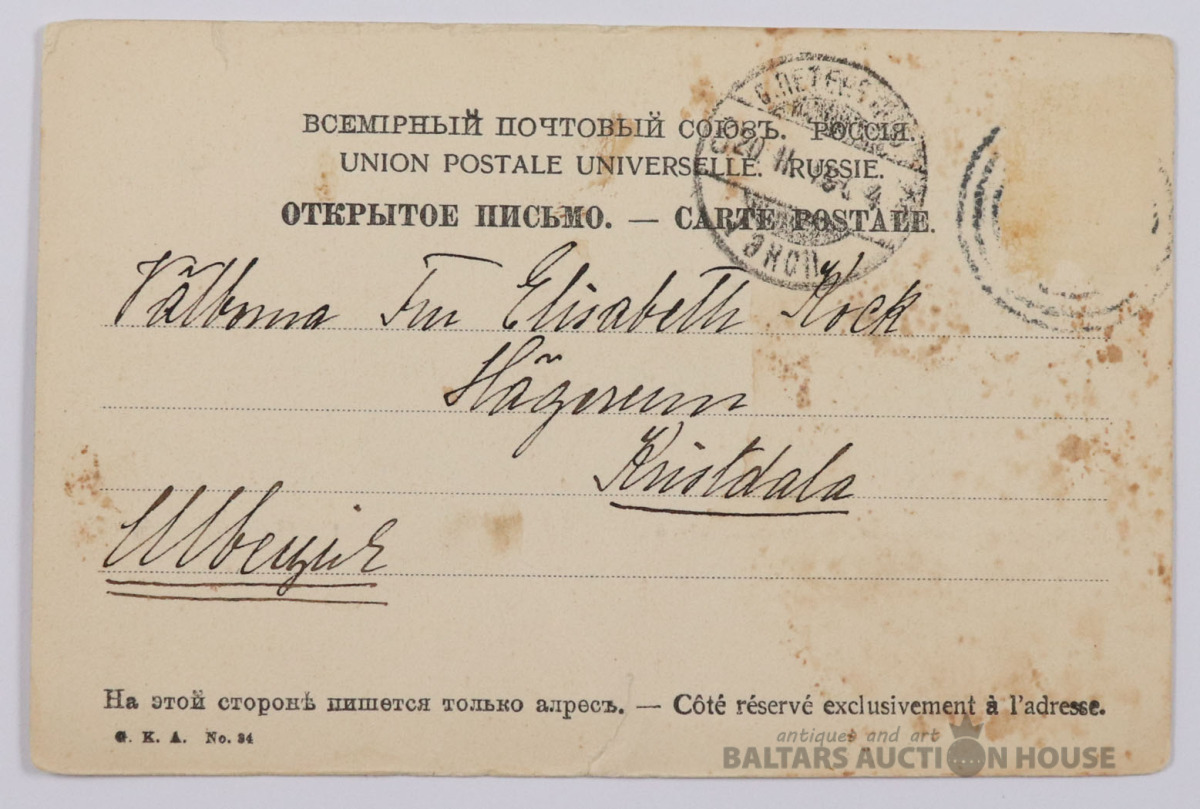 ВСЕМІРНЫЙ ПОЧТОВЫЙ СОЮЗЪ. РОССІЯ.
UNION POSTALE UNIVERSELLE. RUSSIE.
ОТКРЫТОЕ ПИСЬМО. — CARTE POSTALE.
Välborna Fru Elisabeth Kock
Hägerum
Kristdala
Швеція
На этой сторонѣ пишется только адресъ. — Côté réservé exclusivement à l'adresse.
G. K. A. No. 34
antiques and art
BALTARS AUCTION HOUSE